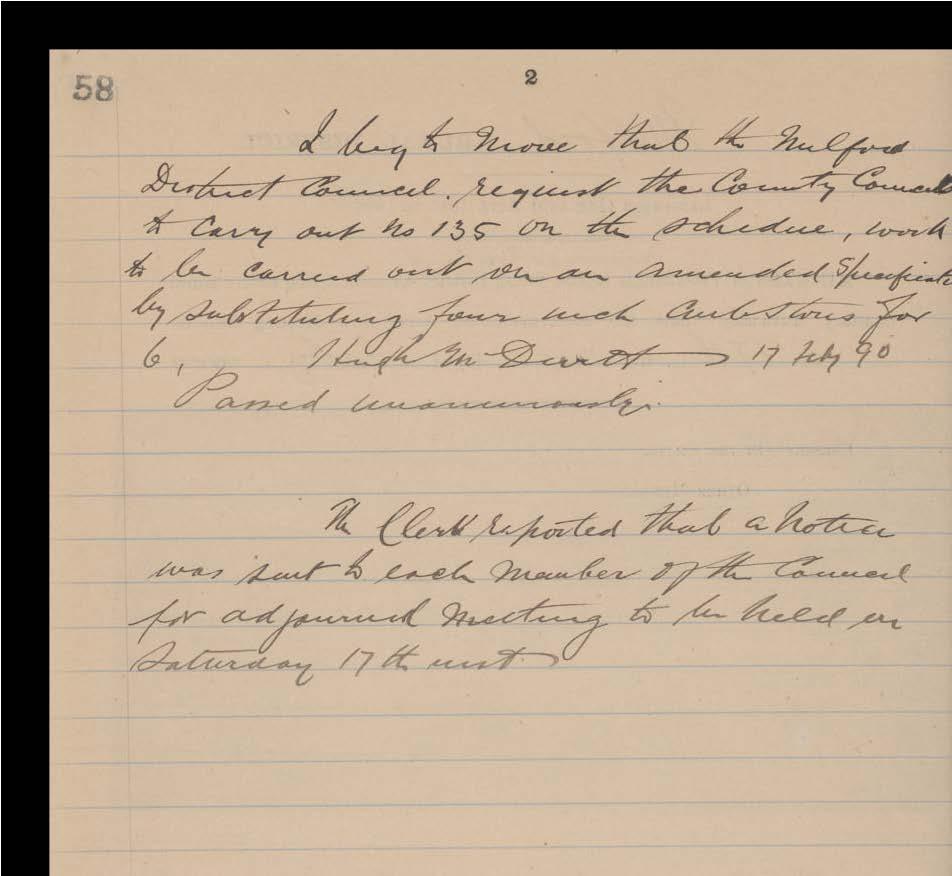 58
2
I beg to Move that the Milford
District Council. request the County Council
to carry out No 135 on the schedue, work
to be carried out on an amended Specificati
by substituting four inch curbstons for
6, Hugh Mc Devitt 17 Feby 90
Passed unanimously.
The Clerk reported that a Notice
was sent to each Member of the Council
for adjourned Meeting to be held on
Saturday 17th inst